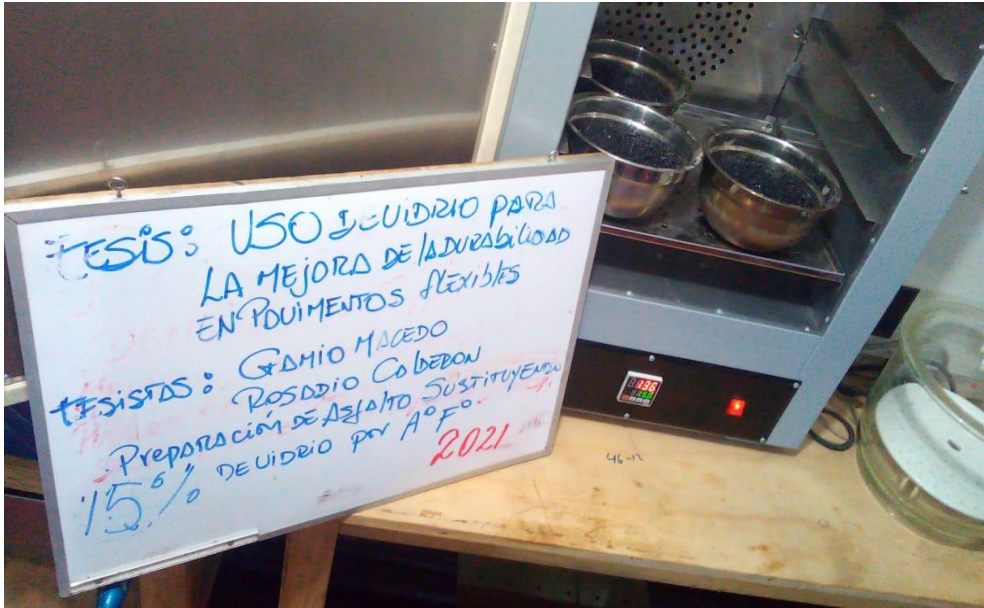 tESiS: USO DE VIDRIO PARA
LA MEJORA DE lA DURAbiliDAD
EN PAVIMENTOS flExiblES
tESiSTAS: GAMiO MACEDO
ROSADIO CALDERON
PrepARACión DE ASfAlTO SUSTiTUYENDO
15% DE VIDRIO por A°F°
2021
136
46-12